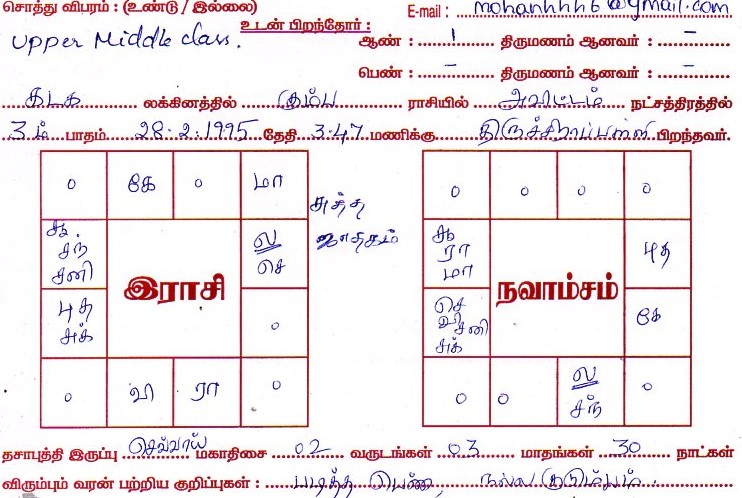 சொத்து விபரம் : (உண்டு / இல்லை) E-mail : mohanhhhh6@gmail.com
Upper Middle class. உடன் பிறந்தோர் : ஆண் : 1 திருமணம் ஆனவர் : –
பெண் : – திருமணம் ஆனவர் : –
கடக லக்கினத்தில் கும்ப ராசியில் அவிட்டம் நட்சத்திரத்தில்
3ம் பாதம் 28-2-1995 தேதி 3-47 மணிக்கு திருச்சிராப்பள்ளி பிறந்தவர்.
0 கே 0 மா
0 0 0 0
சூ. சந் சனி
ல செ
சுத்த ஜாதகம்
சூ ரா மா
புத
இராசி
நவாம்சம்
புத சுக்
0
செ வி சனி சுக்
கே
0 வி ரா 0
0 0 ல சந் 0
தசாபுத்தி இருப்பு செவ்வாய் மகாதிசை 02 வருடங்கள் 03 மாதங்கள் 30 நாட்கள்
விரும்பும் வரன் பற்றிய குறிப்புகள் : படித்த பெண், நல்ல குடும்பம்.